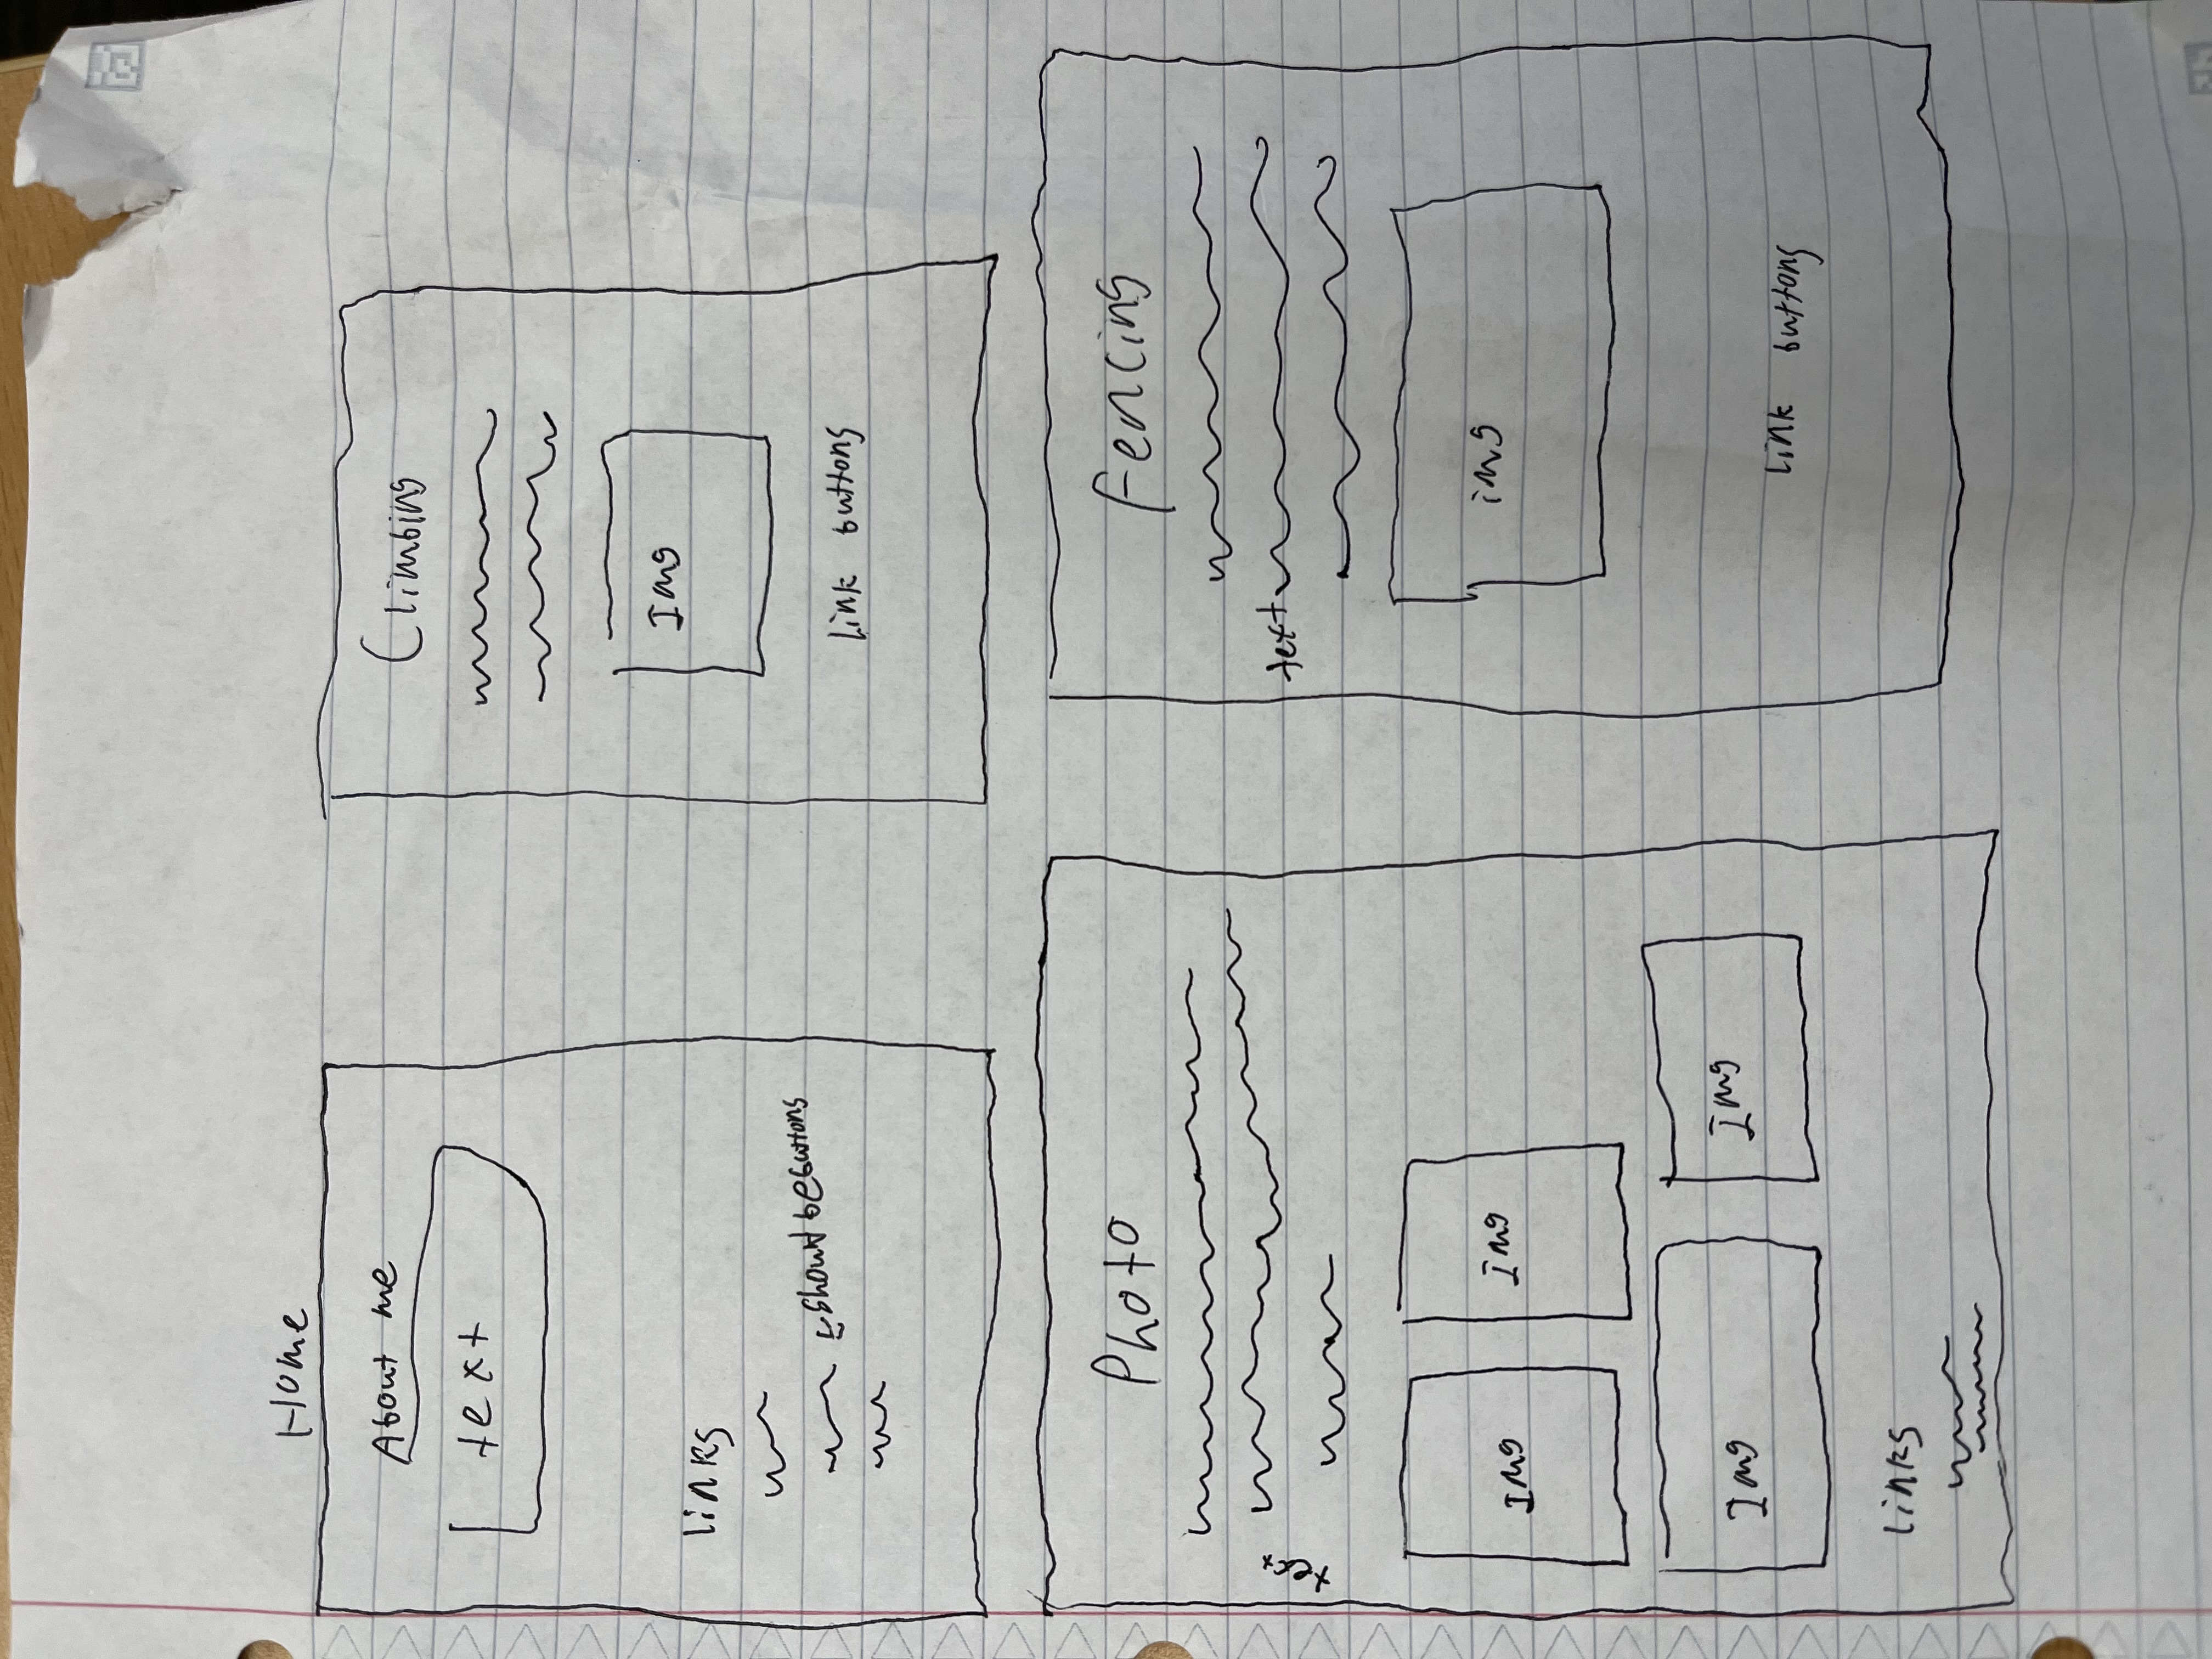 Home
About me
text
links
should be buttons
Climbing
Img
Link buttons
Photo
text
Img
Img
Img
Img
links
Fencing
text
img
Link buttons